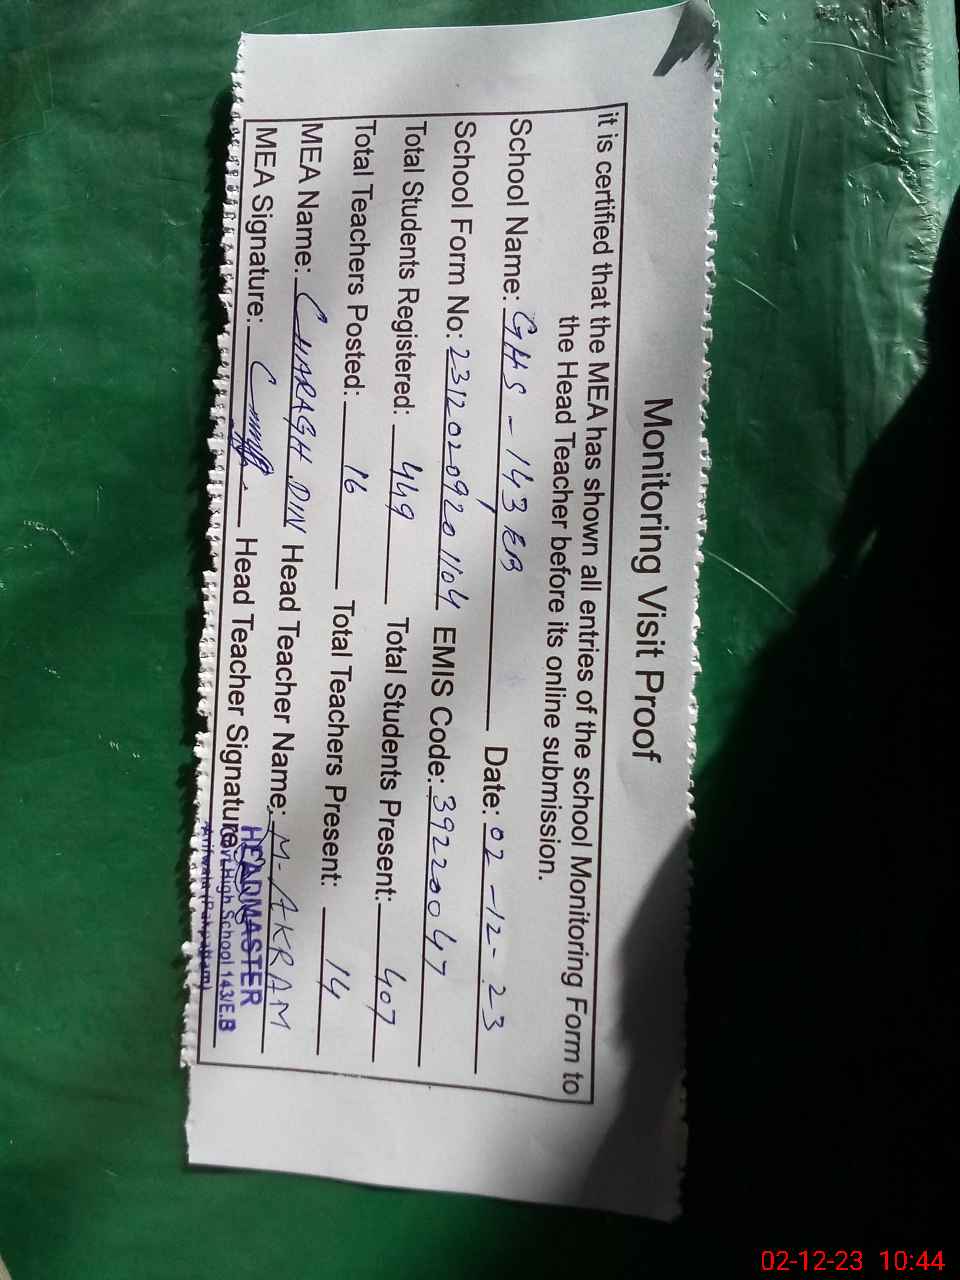 Monitoring Visit Proof
it is certified that the MEA has shown all entries of the school Monitoring Form to
the Head Teacher before its online submission.
School Name: GHS - 143 EB Date: 02-12-23
School Form No: 23120209201104 EMIS Code: 39220047
Total Students Registered: 449 Total Students Present: 407
Total Teachers Posted: 16 Total Teachers Present: 14
MEA Name: CHARAGH DIN Head Teacher Name: M-AKRAM
MEA Signature: Head Teacher Signature
HEADMASTER
Govt.High School 143/E.B
Arifwala (Pakpattan)
02-12-23 10:44